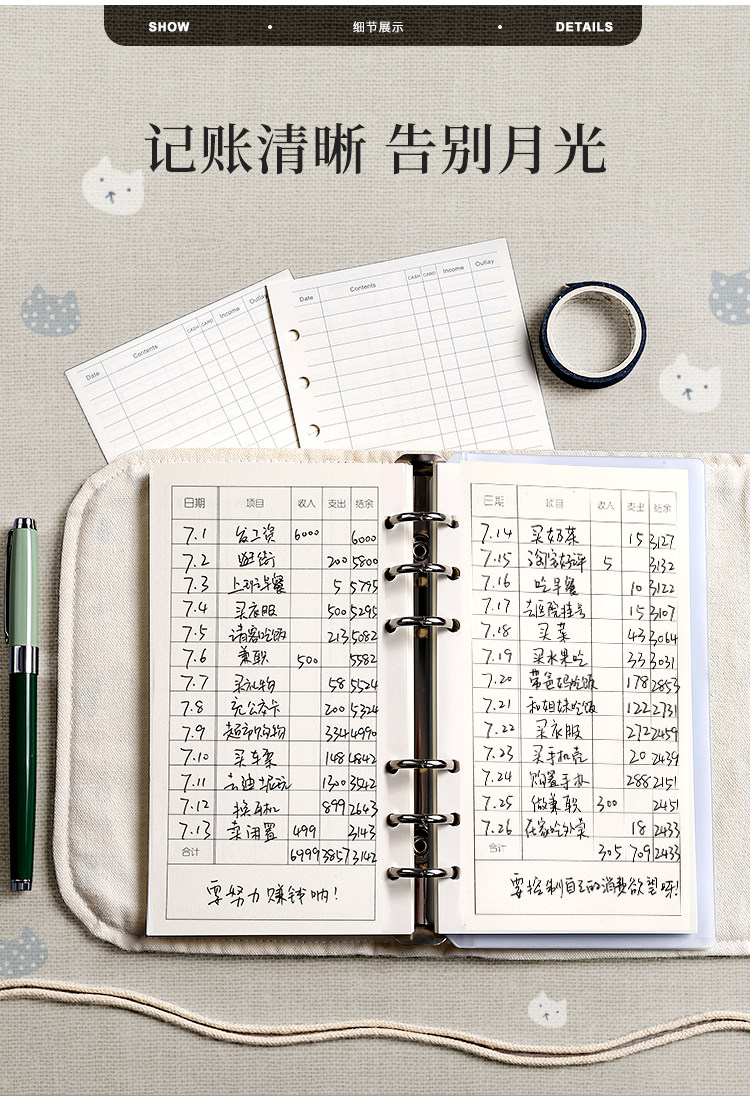 SHOW • 细节展示 • DETAILS
记账清晰 告别月光
Date Contents CASH CARD Income Outlay
Date Contents CASH CARD Income Outlay
日期 项目 收入 支出 结余
7.1 发工资 6000 6000
7.2 逛街 200 5800
7.3 上班早餐 5 5795
7.4 买衣服 500 5295
7.5 请客吃喝 213 5082
7.6 兼职 500 5582
7.7 买礼物 58 5524
7.8 充公交卡 200 5324
7.9 超市购物 334 4990
7.10 买车票 148 4842
7.11 去迪士尼玩 1300 3542
7.12 换耳机 899 2643
7.13 卖闲置 499 3143
合计 6999 3857 3142
要努力赚钱呐!
日期 项目 收入 支出 结余
7.14 买奶茶 15 3127
7.15 淘宝好评 5 3132
7.16 吃早餐 10 3122
7.17 去医院挂号 15 3107
7.18 买菜 43 3064
7.19 买水果吃 33 3031
7.20 带爸妈吃饭 178 2853
7.21 和姐妹吃饭 122 2731
7.22 买衣服 272 2459
7.23 买手机壳 20 2439
7.24 购置手办 288 2151
7.25 做兼职 300 2451
7.26 在家吃外卖 18 2433
合计 305 709 2433
要控制自己的消费欲望呀!